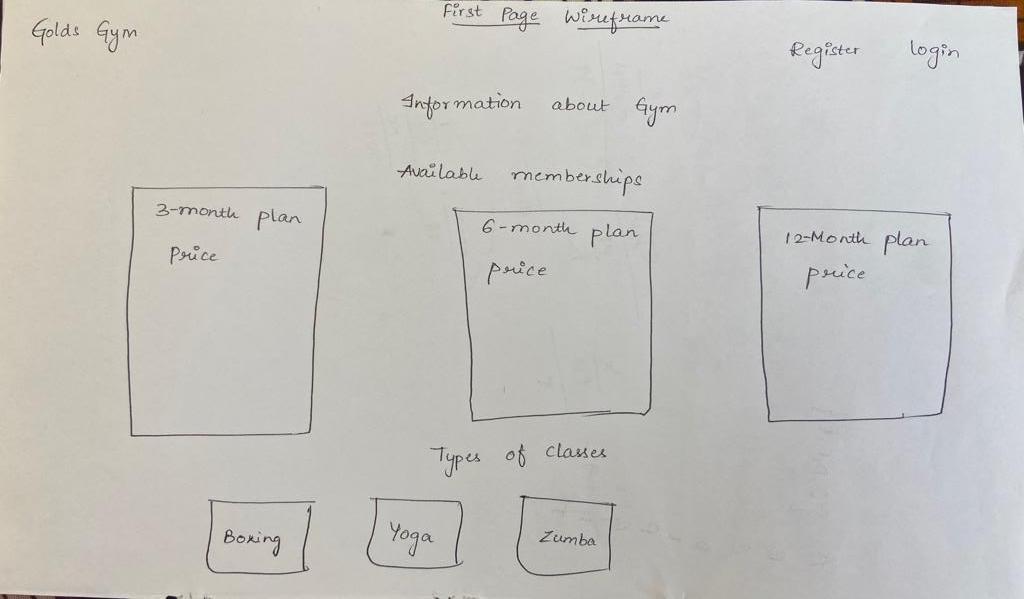 First Page Wireframe
Golds Gym
Register login
Information about Gym
Available memberships
3-month plan
Price
6-month plan
price
12-Month plan
price
Types of classes
Boxing
Yoga
Zumba